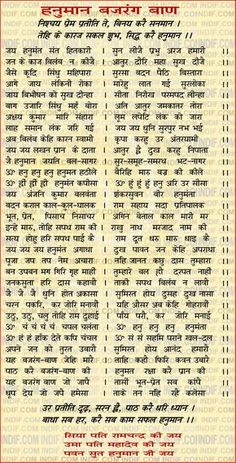 हनुमान बजरंग बाण
निश्चय प्रेम प्रतीति ते, बिनय करैं सनमान ।
तेहि के कारज सकल शुभ, सिद्ध करैं हनुमान ।।
जय हनुमंत संत हितकारी । सुन लीजै प्रभु अरज हमारी ।।
जन के काज बिलंब न कीजै । आतुर दौरि महा सुख दीजै ।।
जैसे कूदि सिंधु महिपारा । सुरसा बदन पैठि बिस्तारा ।।
आगे जाय लंकिनी रोका । मारेहु लात गई सुरलोका ।।
जाय बिभीषन को सुख दीन्हा । सीता निरखि परमपद लीन्हा ।।
बाग उजारि सिंधु महँ बोरा । अति आतुर जमकातर तोरा ।।
अक्षय कुमार मारि संहारा । लूम लपेटि लंक को जारा ।।
लाह समान लंक जरि गई । जय जय धुनि सुरपुर नभ भई ।।
अब बिलंब केहि कारन स्वामी । कृपा करहु उर अंतरयामी ।।
जय जय लखन प्रान के दाता । आतुर ह्वै दुख करहु निपाता ।।
जै हनुमान जयति बल-सागर । सुर-समूह-समरथ भट-नागर ।।
ॐ हनु हनु हनु हनुमंत हठीले । बैरिहि मारु बज्र की कीले ।।
ॐ ह्रीं ह्रीं ह्रीं हनुमंत कपीसा । ॐ हुं हुं हुं हनु अरि उर सीसा ।।
जय अंजनि कुमार बलवंता । शंकरसुवन बीर हनुमंता ।।
बदन कराल काल-कुल-घालक । राम सहाय सदा प्रतिपालक ।।
भूत, प्रेत, पिसाच निसाचर । अगिन बेताल काल मारी मर ।।
इन्हें मारु, तोहि सपथ राम की । राखु नाथ मरजाद नाम की ।।
सत्य होहु हरि सपथ पाइ कै । राम दूत धरु मारु धाइ कै ।।
जय जय जय हनुमंत अगाधा । दुख पावत जन केहि अपराधा ।।
पूजा जप तप नेम अचारा । नहिं जानत कछु दास तुम्हारा ।।
बन उपबन मग गिरि गृह माहीं । तुम्हरे बल हौं डरपत नाहीं ।।
जनकसुता हरि दास कहावौ । ताकी सपथ बिलंब न लावौ ।।
जै जै जै धुनि होत अकासा । सुमिरत होय दुसह दुख नासा ।।
चरन पकरि, कर जोरि मनावौं । यहि औसर अब केहि गोहरावौं ।।
उठु, उठु, चलु तोहि राम दुहाई । पायँ परौं, कर जोरि मनाई ।।
ॐ चं चं चं चं चपल चलंता । ॐ हनु हनु हनु हनु हनुमंता ।।
ॐ हं हं हाँक देत कपि चंचल । ॐ सं सं सहमि पराने खल-दल ।।
अपने जन को तुरत उबारौ । सुमिरत होय आनंद हमारौ ।।
यह बजरंग-बाण जेहि मारै । ताहि कहौ फिरि कवन उबारै ।।
पाठ करै बजरंग-बाण की । हनुमत रक्षा करै प्रान की ।।
यह बजरंग बाण जो जापैं । तासों भूत-प्रेत सब कापैं ।।
धूप देय जो जपै हमेसा । ताके तन नहिं रहै कलेसा ।।
उर प्रतीति दृढ़, सरन ह्वै, पाठ करै धरि ध्यान ।
बाधा सब हर, करैं सब काम सफल हनुमान ।।
सिया पति रामचन्द्र की जय
उमा पति महादेव की जय
पवन सुत हनुमान जी जय